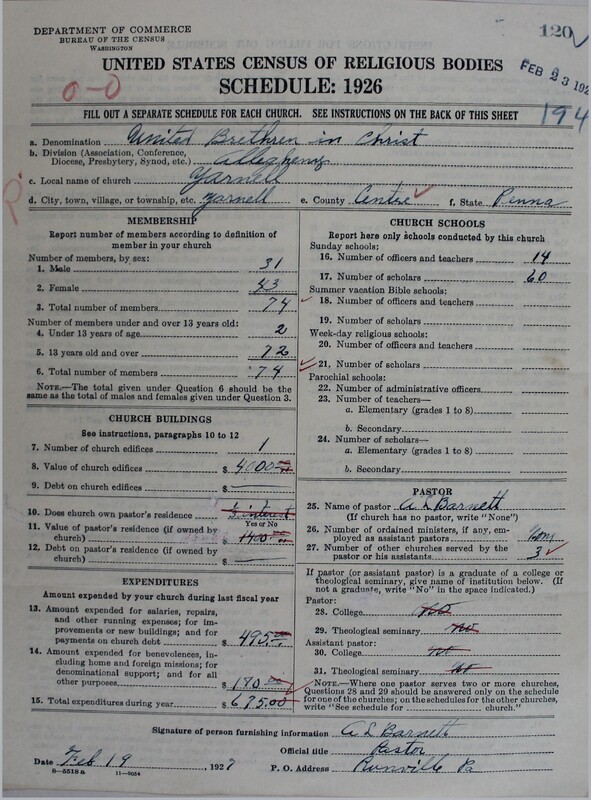 DEPARTMENT OF COMMERCE
BUREAU OF THE CENSUS
WASHINGTON
120
FEB 23 192
UNITED STATES CENSUS OF RELIGIOUS BODIES
SCHEDULE: 1926
0-0
194
FILL OUT A SEPARATE SCHEDULE FOR EACH CHURCH. SEE INSTRUCTIONS ON THE BACK OF THIS SHEET
a. Denomination United Brethren in Christ
b. Division (Association, Conference, Diocese, Presbytery, Synod, etc.) Allegheny
c. Local name of church Yarnell
d. City, town, village, or township, etc. Yarnell e. County Centre f. State Penna
MEMBERSHIP
Report number of members according to definition of
member in your church
Number of members, by sex:
1. Male 31
2. Female 43
3. Total number of members 74
Number of members under and over 13 years old:
4. Under 13 years of age 2
5. 13 years old and over 72
6. Total number of members 74
NOTE.—The total given under Question 6 should be
the same as the total of males and females given under Question 3.
CHURCH BUILDINGS
See instructions, paragraphs 10 to 12
7. Number of church edifices 1
8. Value of church edifices $ 4000
9. Debt on church edifices $
10. Does church own pastor's residence
Yes or No
11. Value of pastor's residence (if owned by
church) $ 1400
12. Debt on pastor's residence (if owned by
church) $
EXPENDITURES
Amount expended by your church during last fiscal year
13. Amount expended for salaries, repairs,
and other running expenses; for im-
provements or new buildings; and for
payments on church debt $ 495
14. Amount expended for benevolences, in-
cluding home and foreign missions; for
denominational support; and for all
other purposes 180
15. Total expenditures during year $ 675.00
CHURCH SCHOOLS
Report here only schools conducted by this church
Sunday schools:
16. Number of officers and teachers 14
17. Number of scholars 60
Summer vacation Bible schools:
18. Number of officers and teachers
19. Number of scholars
Week-day religious schools:
20. Number of officers and teachers
21. Number of scholars
Parochial schools:
22. Number of administrative officers
23. Number of teachers—
a. Elementary (grades 1 to 8)
b. Secondary
24. Number of scholars—
a. Elementary (grades 1 to 8)
b. Secondary
PASTOR
25. Name of pastor A L Barnett
(If church has no pastor, write "None")
26. Number of ordained ministers, if any, em-
ployed as assistant pastors
27. Number of other churches served by the
pastor or his assistants 3
If pastor (or assistant pastor) is a graduate of a college or
theological seminary, give name of institution below. (If
not a graduate, write "No" in the space indicated.)
Pastor:
28. College No
29. Theological seminary No
Assistant pastor:
30. College
31. Theological seminary
NOTE.—Where one pastor serves two or more churches,
Questions 28 and 29 should be answered only on the schedule
for one of the churches; on the schedules for the other churches,
write "See schedule for church."
Signature of person furnishing information A L Barnett
Official title Pastor
Date Feb 19, 1927 P. O. Address Runville Pa
8—5518a 11—9054